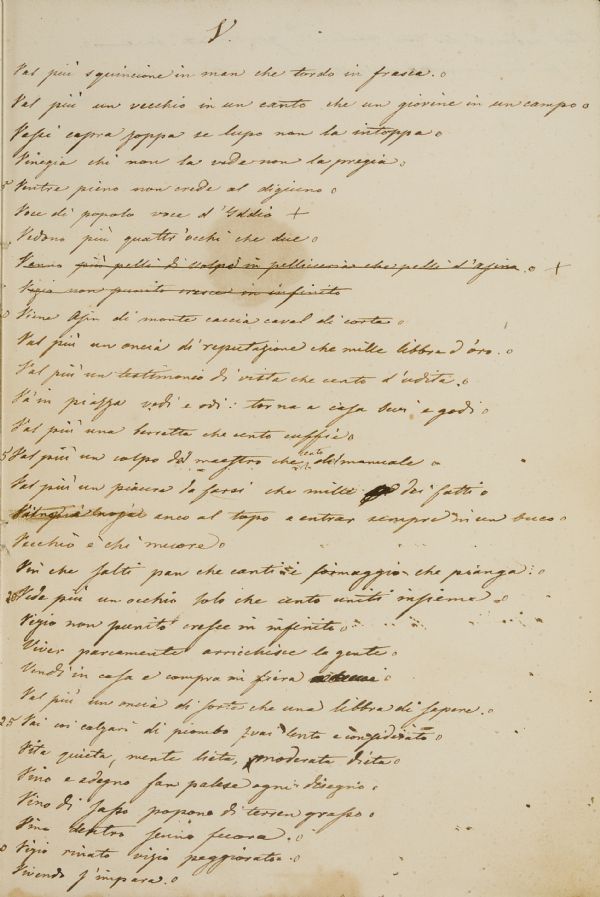 V.
Val più sguincione in man che tordo in frasca.
Val più un vecchio in un canto che un giovine in un campo
Passi capra zoppa se lupo non la intoppa
Vinegia chi non la vede non la pregia
5 Ventre pieno non crede al digiuno
Voce di popolo voce d'Iddio +
Vedono più quattr'occhi che due
Venno più pelli di volpe in pelliceria che pelli d'asina. +
Vizio non punito cresce in infinito
Viene Asin di monte caccia caval di corte
Val più un oncia di reputazione che mille libbra d'oro.
Val più un testimonio di vista che cento d'udita.
Va in piazza vedi e odi: torna a casa bevi e godi
Val più una berretta che cento cuffie
5 Val più un colpo del maestro che cento di manuale
Val più un piacere da farsi che mille dei fatti
anco al topo a entrar sempre in un buco
Vecchio è chi muore
Vin che salti pan che canti e formaggio che pianga:
20 Vede più un occhio solo che cento uniti insieme
Vizio non punito cresce in infinito
Viver parcamente arricchisce la gente
Vendi in casa e compra in fiera
Val più un oncia di sorte che una libbra di sapere.
25 Vai coi calzari di piombo vai lento e considerato
Vita quieta, mente lieta, moderata dieta
Vino e sdegno fan palese ogni disegno
Vino di sasso popone di terren grasso
Vino dentro senno fuora.
0 Vizio rinato vizio peggiorato
Vivendo s'impara.